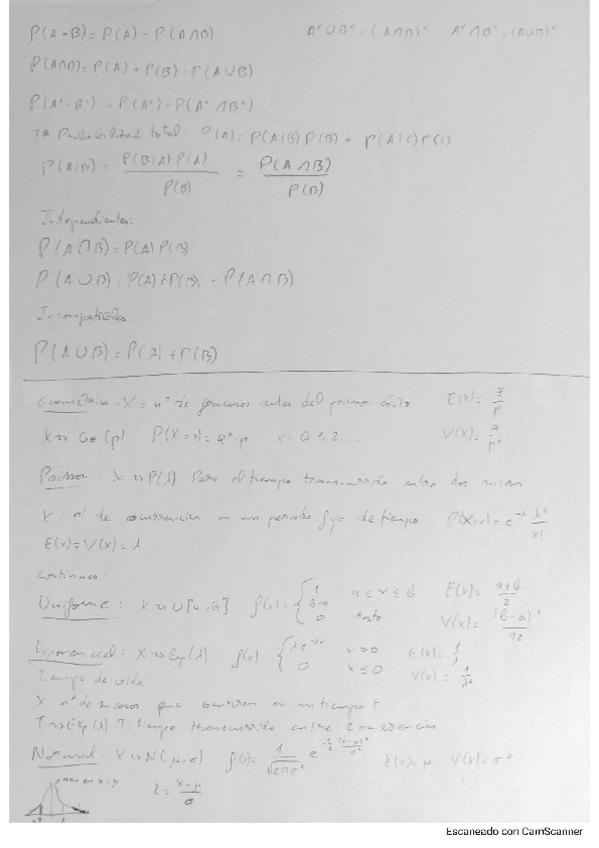 P(A-B) = P(A) - P(A∩B)    Aᶜ∪Bᶜ = (A∩B)ᶜ    Aᶜ∩Bᶜ = (A∪B)ᶜ
P(A∩B) = P(A) + P(B) - P(A∪B)
P(Aᶜ-Bᶜ) = P(Aᶜ) - P(Aᶜ∩Bᶜ)
Tª Probabilidad total: P(A) = P(A|B) P(B) + P(A|C) P(C)
P(A|B) = P(B|A) P(A) / P(B) = P(A∩B) / P(B)
Independientes:
P(A∩B) = P(A) P(B)
P(A∪B) = P(A) + P(B) - P(A∩B)
Incompatibles
P(A∪B) = P(A) + P(B)
Geométrica: X = nº de fracasos antes del primer éxito    E(x) = q/p
X ~ Ge(p)    P(X=x) = qˣ·p    x = 0, 1, 2, ...    V(x) = q/p²
Poisson: X ~ P(λ) Para el tiempo transcurrido entre dos sucesos
X: nº de ocurrencias en un periodo fijo de tiempo    P(X=x) = e^-λ λˣ/x!
E(x) = V(x) = λ
Continuas:
Uniforme: X ~ U[a, b]    f(x) = { 1/(b-a)    a ≤ x ≤ b    E(x) = (a+b)/2
0    resto    V(x) = (b-a)²/12
Exponencial: X ~ Exp(λ)    f(x) = { λe^-λx    x>0    E(x) = 1/λ
0    x≤0    V(x) = 1/λ²
Tiempo de vida
X nº de sucesos que ocurren en un tiempo t
T ~ Exp(λ) T: tiempo transcurrido entre 2 ocurrencias
Normal: X ~ N(μ, σ)    f(x) = 1/√(2πσ²) e^(-1/2 (x-μ)²/σ²)    E(x) = μ    V(x) = σ²
max en x=μ
Z = (x-μ)/σ
Escaneado con CamScanner